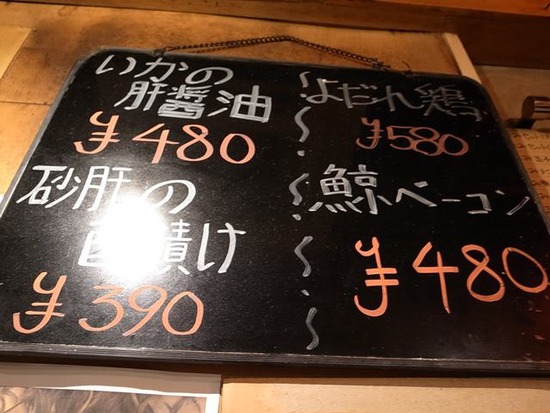 いかの
肝醤油
¥480
砂肝の
酢漬け
¥390
よだれ鶏
¥580
鯨ベーコン
¥480